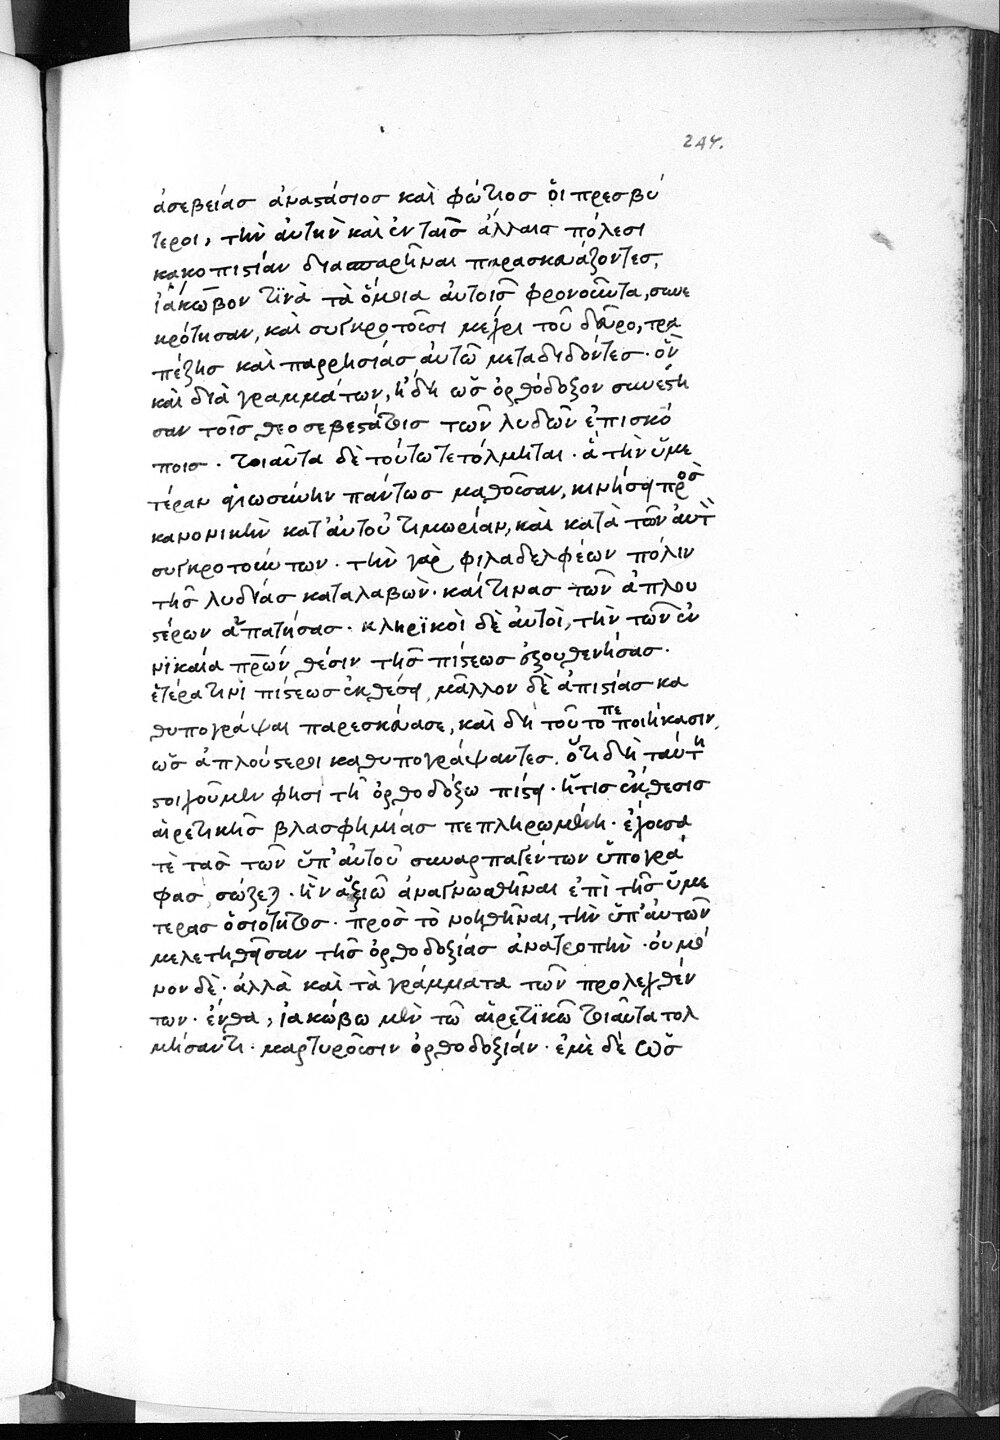 247.
ἀσεβείασ ἀναστάσιοσ καὶ φώτιοσ ὅι πρεσβύ
τεροι, τὴν ἀυτὴν καὶ ἐν ταῖσ ἄλλαισ πόλεσι
κακοπιστίαν διασπαρῆναι παρασκευάζοντεσ,
ἰάκωβον τϊνὰ τὰ ὅμοια ἀυτοισ φρονοῦντα, συνε
κρότησαν, καὶ συγκροτοῦσι μέχρι τοῦ δεῦρο, τρα
πέζησ καὶ παρρησίασ ἀυτῶ μεταδιδόντεσ· ὃν
καὶ διὰ γραμμάτων, ἤδη ὡσ ὀρθόδοξον συνέστη
σαν τοῖσ θεοσεβεστάτοισ τῶν λυδῶν ἐπισκό
ποισ. τοιαῦτα δὲ τούτω τετόλμηται· ἃ τὴν ὑμε
τέραν ἁγιωσύνην πάντωσ μαθοῦσαν, κινήσει πρὸσ
κανονικὴν κατ' ἀυτοῦ τιμωρίαν, καὶ κατὰ τῶν ἀυτ
συγκροτούντων. τὴν γὰρ φιλαδελφέων πόλιν
τῆσ λυδίασ καταλαβὼν. καί τινασ τῶν ἁπλου
στέρων ἀπατήσασ. κληρϊκοὶ δὲ ἀυτοὶ, τὴν τῶν ἐν
νϊκαία πρων θέσιν τῆσ πίστεωσ ἐξουθενήσασ.
ἑτέρα τινὶ πίστεωσ ἐκθέσει, μᾶλλον δὲ ἀπιστίασ κα
θυπογράψαι παρεσκεύασε, καὶ δὴ τοῦτο πεποιήκασιν,
ὡσ ἁπλούστεροι καθυπογράψαντεσ. ὅτι δὴ ταύτη
στοιχοῦμεν φησὶ τῆ ὀρθοδόξω πίστει. ἥτισ ἔκθεσισ
αἱρετικῆσ βλασφημίασ πεπληρωμένη. ἔχουσα
τὲ τασ τῶν ὑπ' ἀυτοῦ συναρπαγέντων ὑπογρα
φασ, σώζεται. ἣν ἀξιῶ ἀναγνωσθῆναι ἐπὶ τῆσ ὑμε
τερασ ὁσιότητοσ. πρὸσ τὸ νοηθῆναι, τὴν ὑπ' ἀυτῶν
μελετηθεῖσαν τῆσ ὀρθοδοξίασ ἀνατροπὴν. ὀυ μό
νον δὲ. ἀλλὰ καὶ τὰ γράμματα τῶν προλεχθέν
των. ἔνθα, ἰακώβω μὲν τῶ αἱρετϊκῶ τοιαῦτα τολ
μήσαντι. μαρτυροῦσιν ὀρθοδοξίαν. ἐμὲ δὲ ὡσ